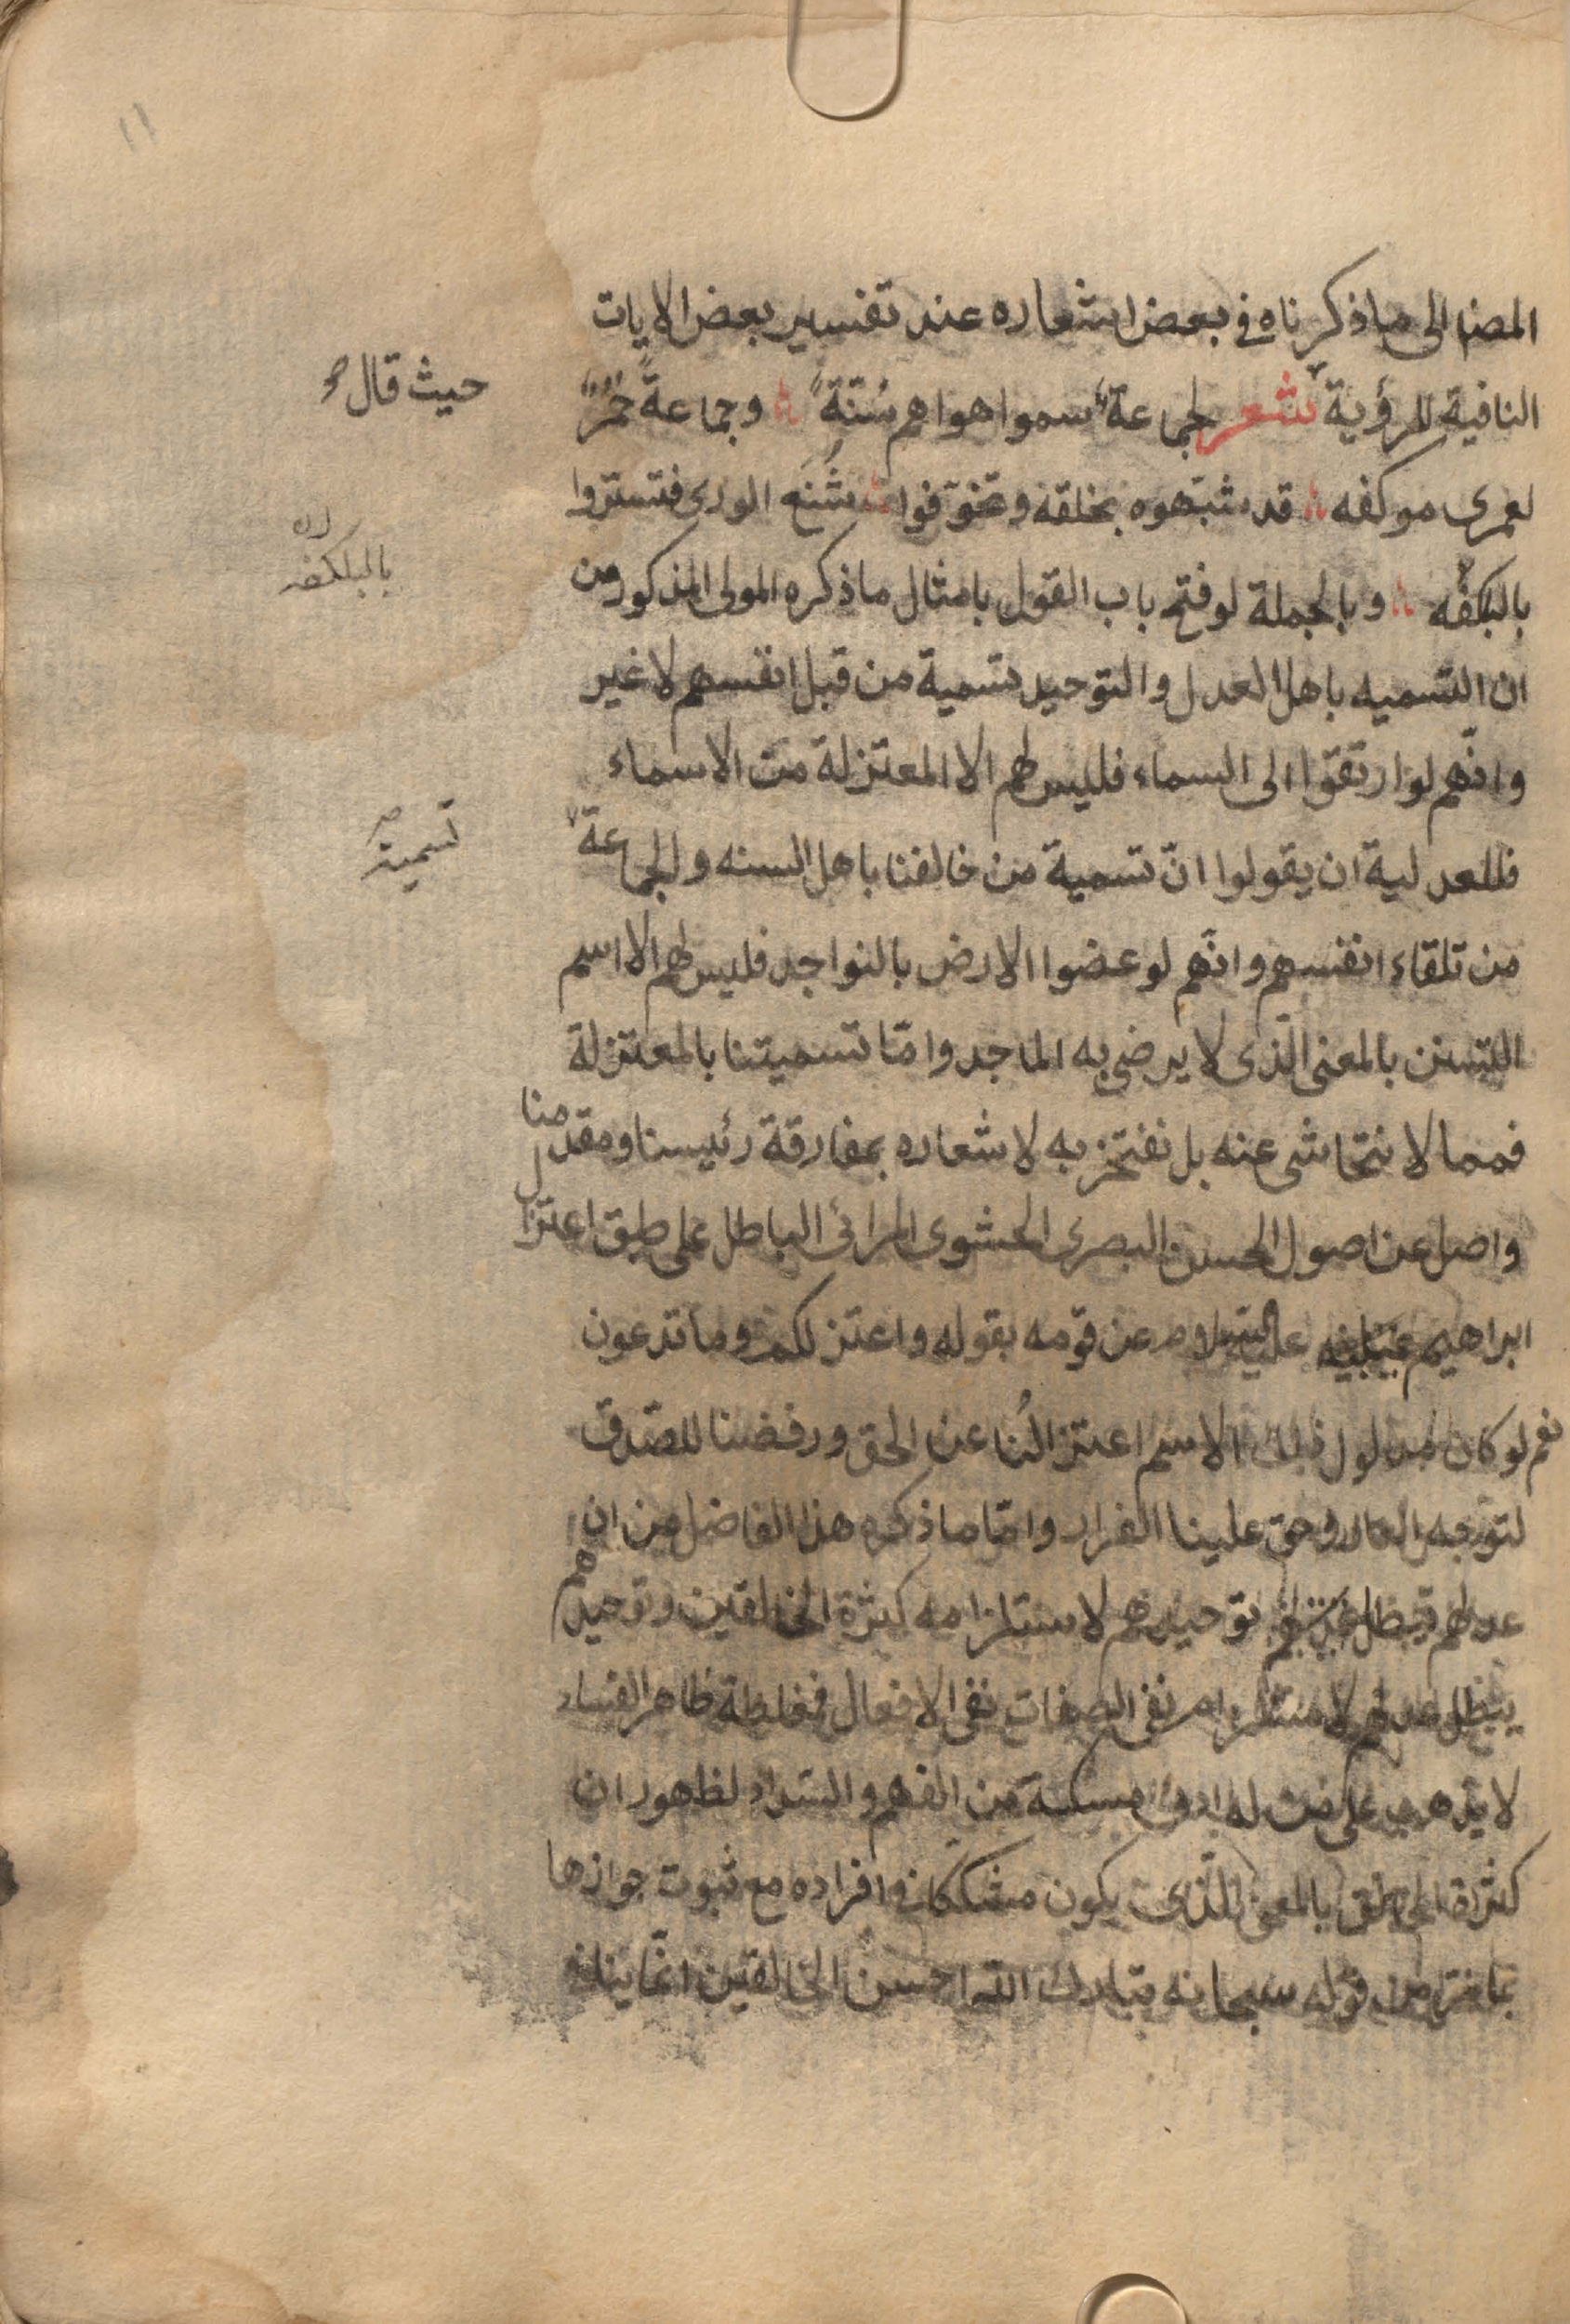 ١١
المصنا الى ما ذكرناه في بعض اشعاره عند تفسير بعض الايات
النافية للرؤية شعر لجماعة سموا هواهم سُنّةً وجماعةً حُمُرٌ
حيث قال صح
لعمرى موكفه قد شبّهوه بخلقه وتخوّفوا شُنَعَ الورى فتستروا
بالبلكفه
بالبلكفه وبالجملة لو فتح باب القول بامثال ما ذكره المولى المذكور من
ان التسميه باهل العدل والتوحيد تسمية من قبل انفسهم لا غير
وانّهم لو ارتقوا الى السماء فليس لهم الا المعتزلة من الاسماء
تسمية صح
فللعدلية ان يقولوا انّ تسمية من خالفنا باهل السنه والجماعة
من تلقاء انفسهم وانّهم لو عضوا الارض بالنواجد فليس لهم الا اسم
التسنن بالمعنى الّذى لا يرضى به الماجد وامّا تسميتنا بالمعتزلة
فمما لا نتحاشى عنه بل نفتخر به لاشعاره بمفارقة رئيسنا ومقدمنا
واصل عن اصول الحسن البصرى الحشوى المرائى الباطل على طبق اعتزال
ابراهيم عليه السلام عن قومه بقوله واعتزلكم وما تدعون
نعم لو كان مدلول ذلك الاسم اعتزالُنا عن الحق ورفضنا للصّدق
لتوجه العار وحق علينا الفرار وامّا ما ذكره هذا الفاضل من ان
عدلهم يبطل توحيدهم لاستلزامه كثرة الخالقين وتوحيدهم
يبطل عدلهم لاستلزام نفى الصفات نفى الافعال فمغلطة ظاهر الفساد
لا يذهب على من له ادنى مسكة من الفهم والسّداد لظهور ان
كثرة الخالق بالمعنى الّذى يكون مشككا فى افراده مع ثبوت جوازها
بما من قوله سبحانه فتبارك الله احسن الخالقين انّما ينافى